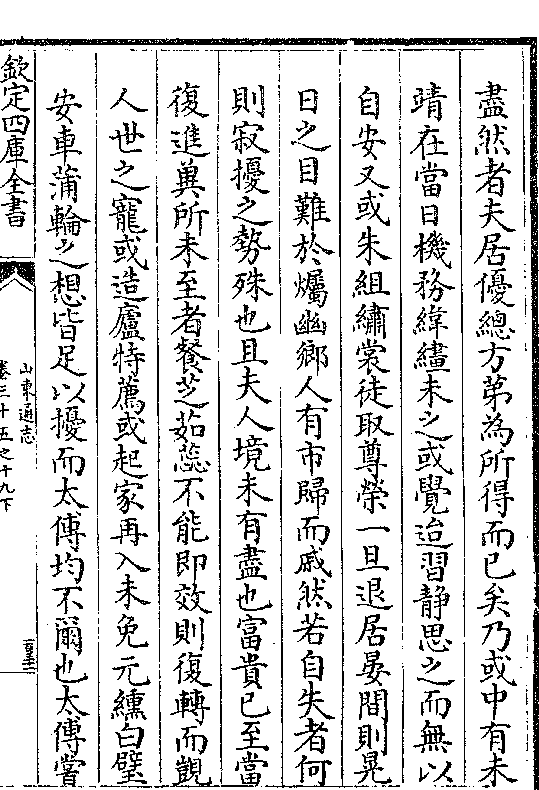 盡然者夫居優總方第為所得而已矣乃或中有未
靖在當日機務緯繣未之或覺迨習静思之而無以
自安又或朱組繡裳徒取尊榮一旦退居晏間則晃
日之目難於爥幽鄉人有市歸而戚然若自失者何
則寂擾之勢殊也且夫人境未有盡也富貴已至當
復進兾所未至者餐芝茹蕊不能即效則復轉而覬
人世之寵或造廬特薦或起家再入未免元纁白璧
安車蒲輪之想皆足以擾而太傅均不爾也太傅嘗
欽定四庫全書
山東通志
卷三十五之十九下